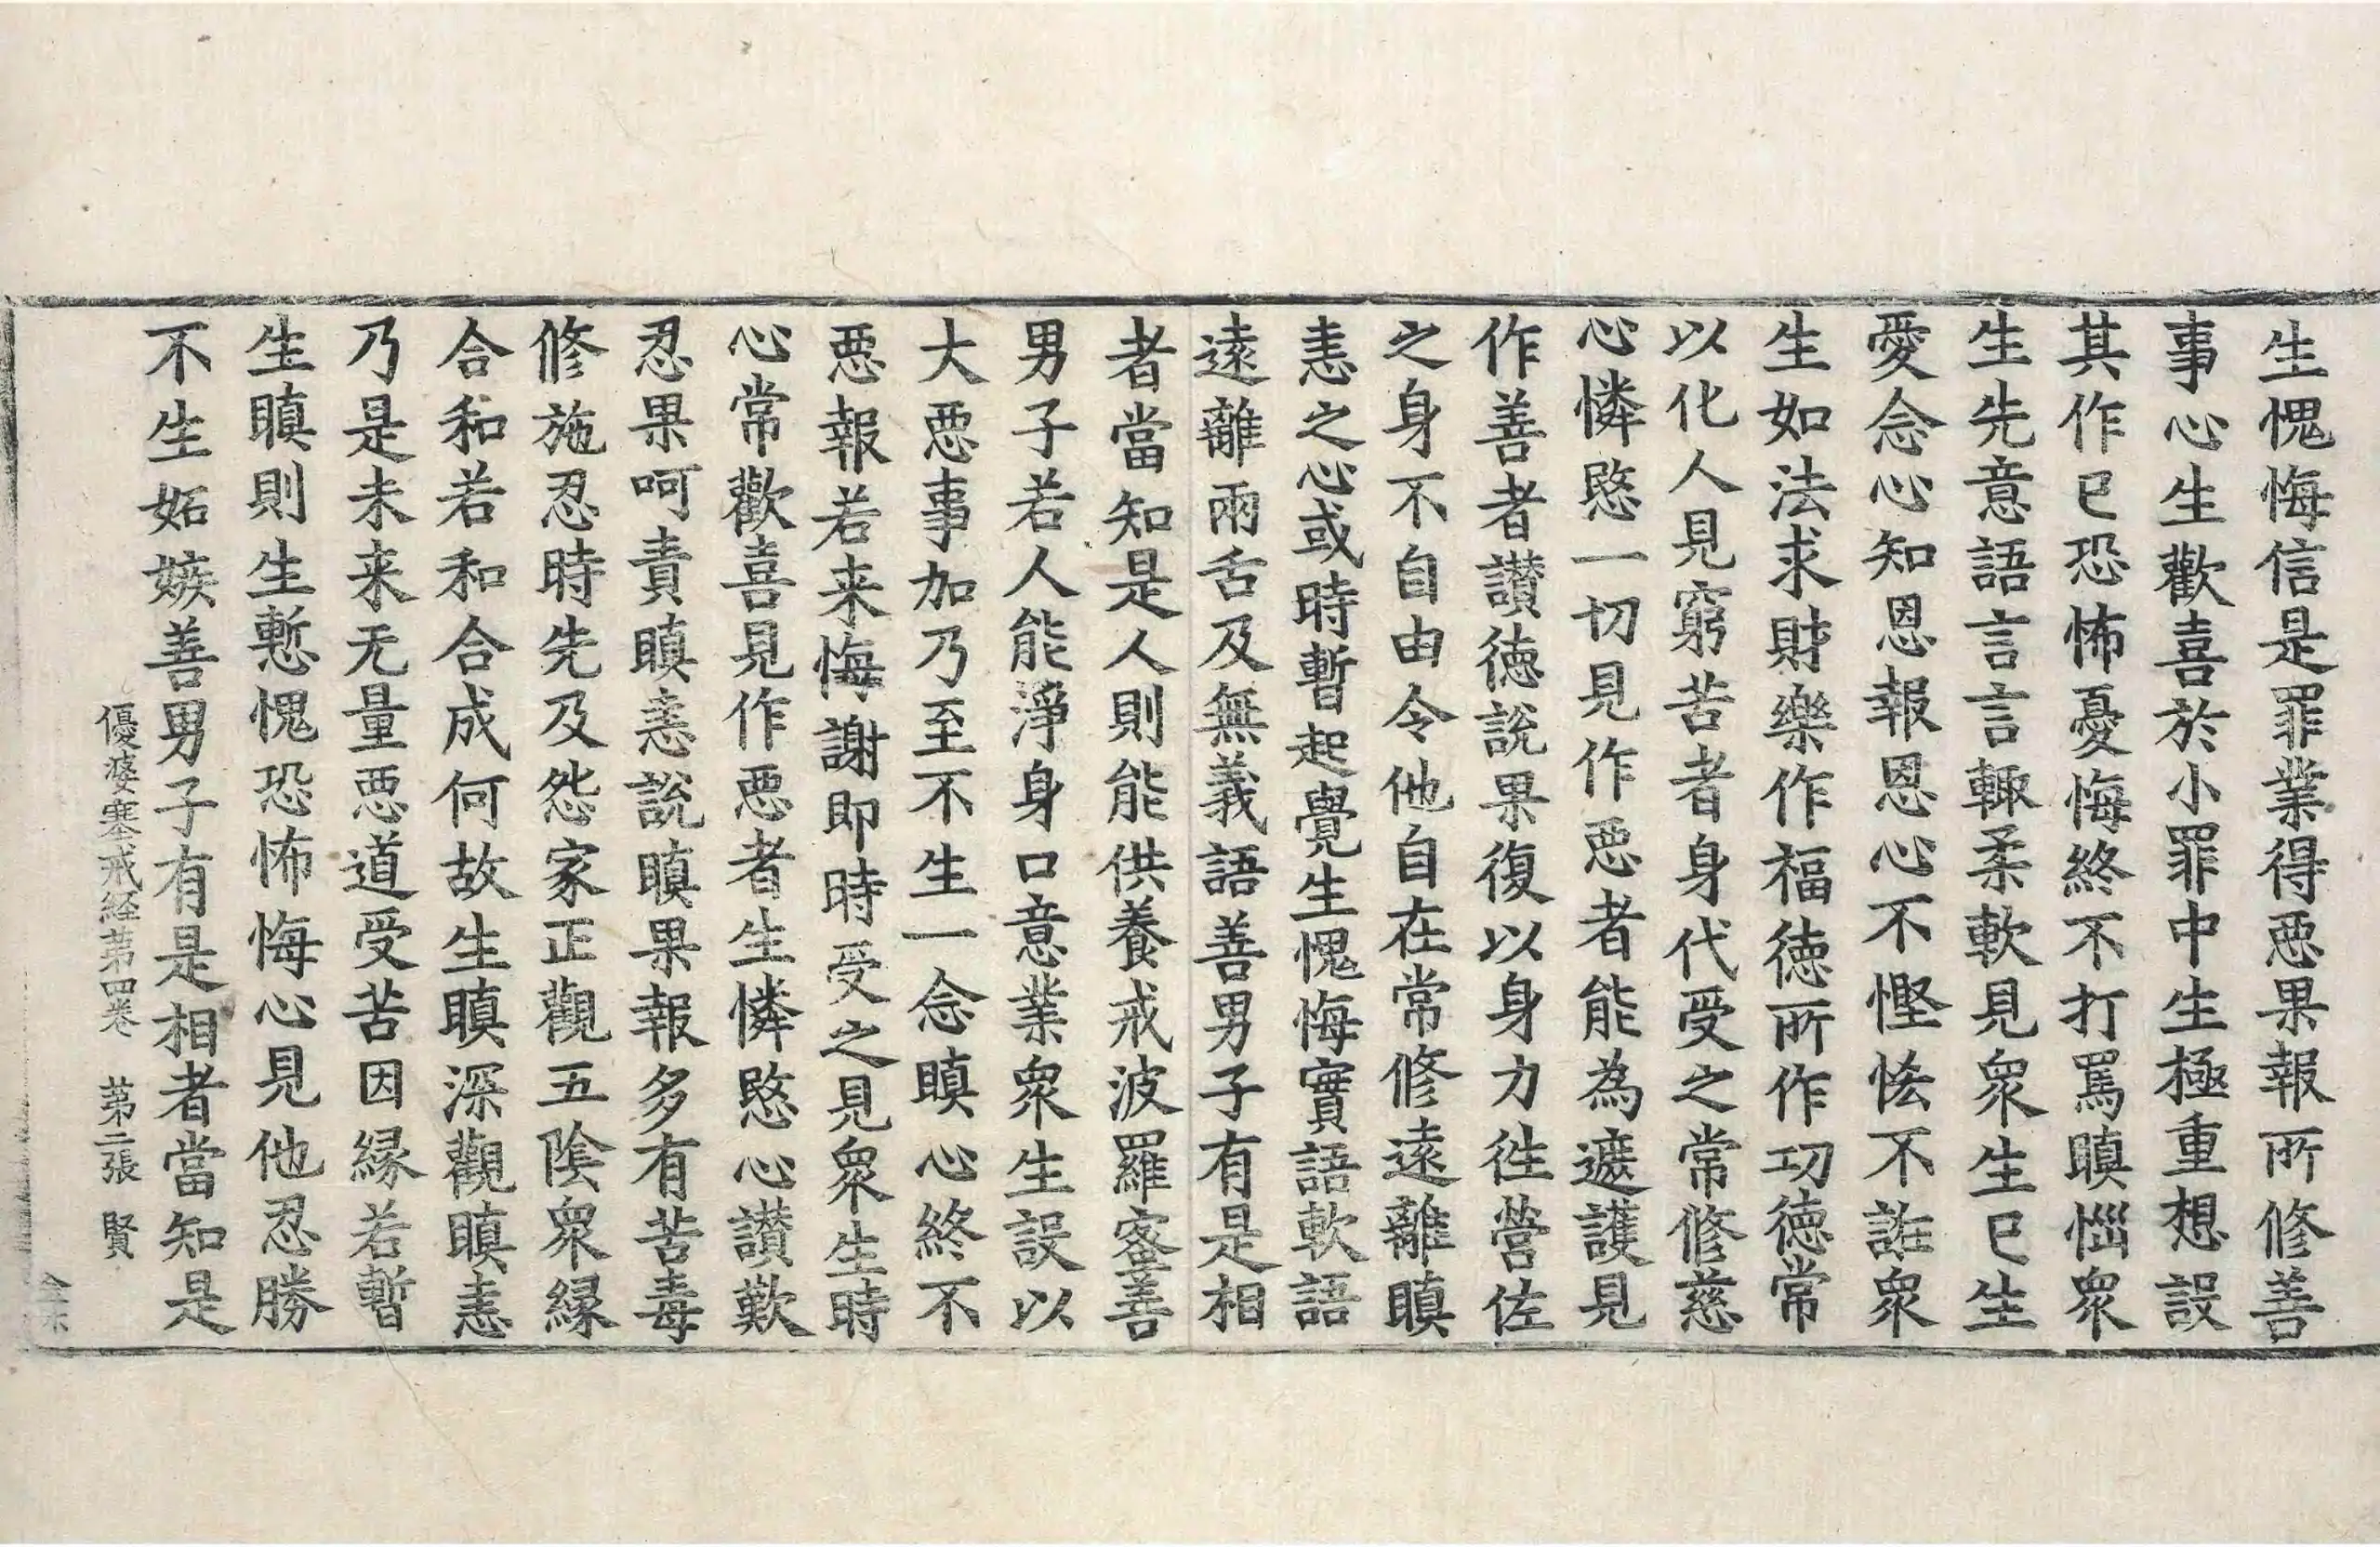 生愧悔信是罪業得惡果報所修善
事心生歡喜於小罪中生極重想設
其作已恐怖憂悔終不打罵瞋惱衆
生先意語言言輙柔軟見衆生已生
愛念心知恩報恩心不慳悋不誑衆
生如法求財樂作福徳所作功徳常
以化人見窮苦者身代受之常修慈
心憐愍一切見作惡者能為遮護見
作善者讃徳說果復以身力徃營佐
之身不自由令他自在常修遠離瞋
恚之心或時暫起覺生愧悔實語軟語
遠離兩舌及無義語善男子有是相
者當知是人則能供養戒波羅蜜善
男子若人能淨身口意業衆生設以
大惡事加乃至不生一念瞋心終不
惡報若来悔謝即時受之見衆生時
心常歡喜見作惡者生憐愍心讃歎
忍果呵責瞋恚說瞋果報多有苦毒
修施忍時先及怨家正觀五陰衆縁
合和若和合成何故生瞋深觀瞋恚
乃是未来无量惡道受苦因縁若暫
生瞋則生慙愧恐怖悔心見他忍勝
不生妬嫉善男子有是相者當知是
優婆塞戒経苐四卷 苐二張 賢